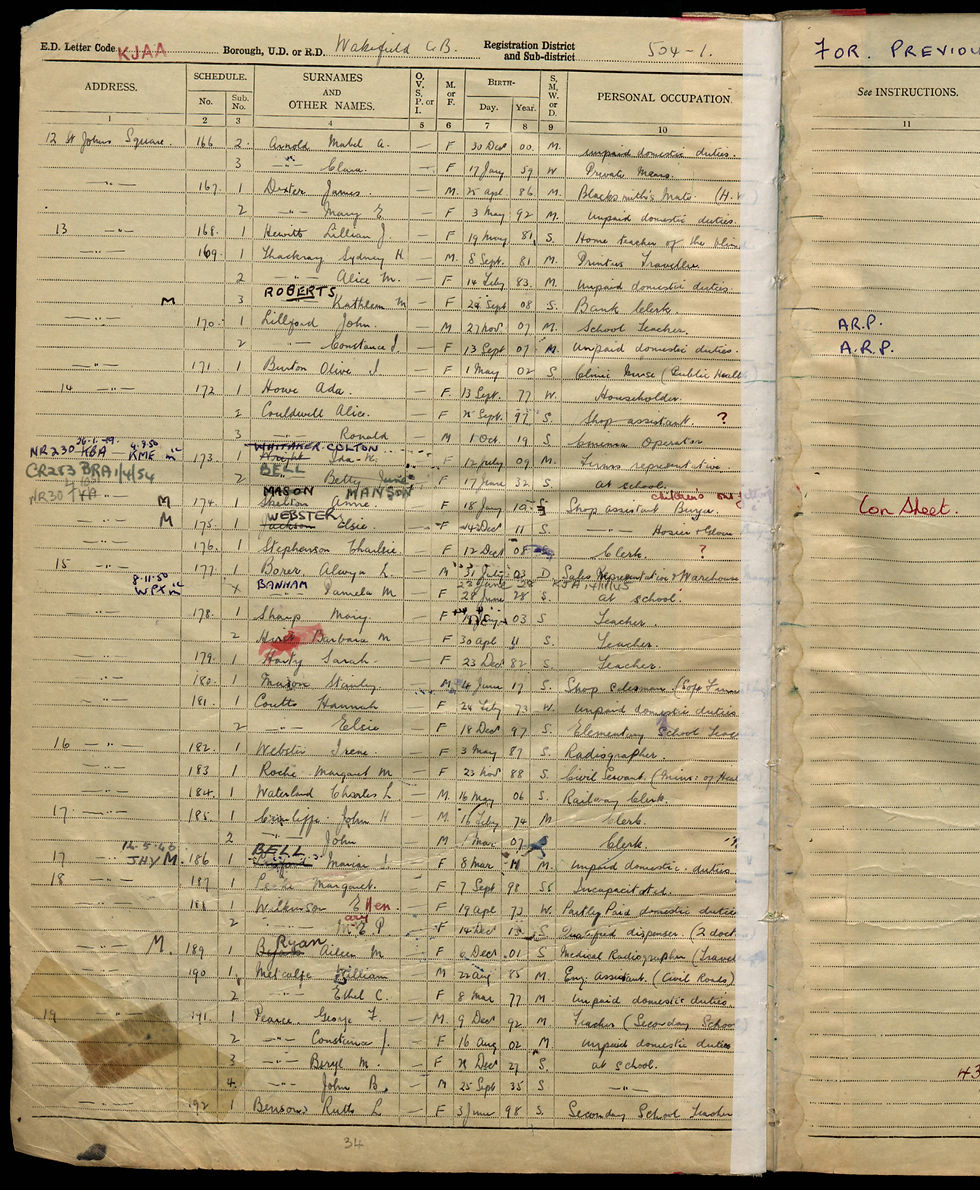 E.D. Letter Code KJAA Borough, U.D. or R.D. Wakefield C.B. Registration District and Sub-district 504-1. FOR. PREVIOU
ADDRESS. SCHEDULE. No. Sub. No. SURNAMES AND OTHER NAMES. O, V, S, P, or I. M. or F. BIRTH- Day. Year. S, M, W, or D. PERSONAL OCCUPATION. See INSTRUCTIONS.
1 2 3 4 5 6 7 8 9 10 11
12 St Johns Square. 166 2 Arnold Mabel A. — F 30 Dec 00. M. unpaid domestic duties.
3 —"— Clara. — F 17 Jany 59 W Private Means.
—"— 167. 1 Dexter James. — M. 25 Apl. 86 M. Blacksmith's Mate (H.
2 —"— Mary E. — F 3 May 92 M. Unpaid domestic duties.
13 —"— 168. 1 Hewitt Lillian J — F 81, S. Home teacher of the blind
—"— 169. 1 Thackray Sydney H — M. 8 Sept. 81 M. Printers Traveller
2 —"— Alice M. — F 14 Feby 83. M. Unpaid domestic duties.
M 3 ROBERTS Kathleen M — F 24 Sept 08 S. Bank Clerk.
—"— 170. 1 Lillford John. — M 27 Nov 07 M. School Teacher. A.R.P.
2 —"— Constance J. — F 13 Sept 07 M. Unpaid domestic duties. A.R.P.
—"— 171. 1 Burton Olive J. — F 1 May 02 S Clinic Nurse (Public Healt
14 —"— 172. 1 Howe Ada. — F. 13 Sept. 77 W. Householder.
2 Couldwell Alice. — F 25 Sept. 97 S. Shop assistant. ?
3 —"— Ronald — M 1 Oct. 19 S Cinema Operator
NR230 KGA KME 4.9.50 173. 1 WHITAKER COLTON — F 12 July 09 M. Firms representative.
CR283 BRA 1/4/54 2 BELL Betty — F 17 June 32 S. at school.
M 174. 1 MASON MANSON Skelton Anne. — F 18 Jany 10. S Shop assistant Buyer. children's Con Sheet.
M 175. 1 WEBSTER Jackson Elsie — F 24 Dec 11 S —"— Hosier & Glove
176. 1 Stephenson Charlsie. — F 12 Dec 08 Clerk. ?
15 —"— 177. 1 Borer Alwyn L. — M 31 July 03 D Sales Representative & Warehouse
8.11.50 WPX X BANHAM Pamela M — F 28 June 28 S. at school.
178. 1 Sharp Mary. — F 03 S. Teacher.
2 Barbara M — F 30 Apl 11 S. Teacher.
179. 1 Harty Sarah. — F 23 Dec 82 S. Teacher.
180. 1 Stanley. — M 4 June 17 S. Shop Salesman
181. 1 Coutts Hannah — F 24 Feby 73 W. Unpaid domestic duties
2 —"— Elsie — F 18 Dec 97 S. Elementary School Teac
16 —"— 182. 1 Webster Irene. — F 3 May 87 S. Radiographer.
183 1 Roche Margaret M — F 23 Nov 88 S. Civil Servant (Minis: of Heal
—"— 184. 1 Waterland Charles L. — M. 16 May 06 S. Railway Clerk.
17 —"— 185. 1 Cunliffe John H — M 16 Feby 74 M Clerk.
2 —"— John — M 1 Mar 07 Clerk.
17 —"— 12.5.43 JHY M. 186 1 BELL Marian J. — F 8 Mar 11 M. Unpaid domestic duties
18 —"— 187 1 Margaret. — F 7 Sept 98 S Incapacitated.
188 1 Wilkinson Ellen. — F 19 Apl 72 W. Partly Paid domestic duties
2 —"— Mary E P — F 14 Dec 13 S Qualified dispenser. (2 doct
—"— M. 189 1 Ryan Aileen M — F 6 Dec 01 S Medical Radiographer
—"— 190 1 Metcalfe William — M 22 Aug 85 M. Eng. Assistant. (Civil Roads)
2 —"— Ethel C. — F 8 Mar 77 M Unpaid domestic duties.
19 —"— 191. 1 Pearce George F. — M 9 Dec 92 M Teacher (Secondary School
2 —"— Constance J. — F 16 Aug 02 M Unpaid domestic duties
3 —"— Beryl M. — F 28 Dec 27 S. at school.
4. —"— John B. — M 25 Sept 35 S —"— 43
192 1 Benson Ruth L — F 3 June 98 S. Secondary School Teacher
34